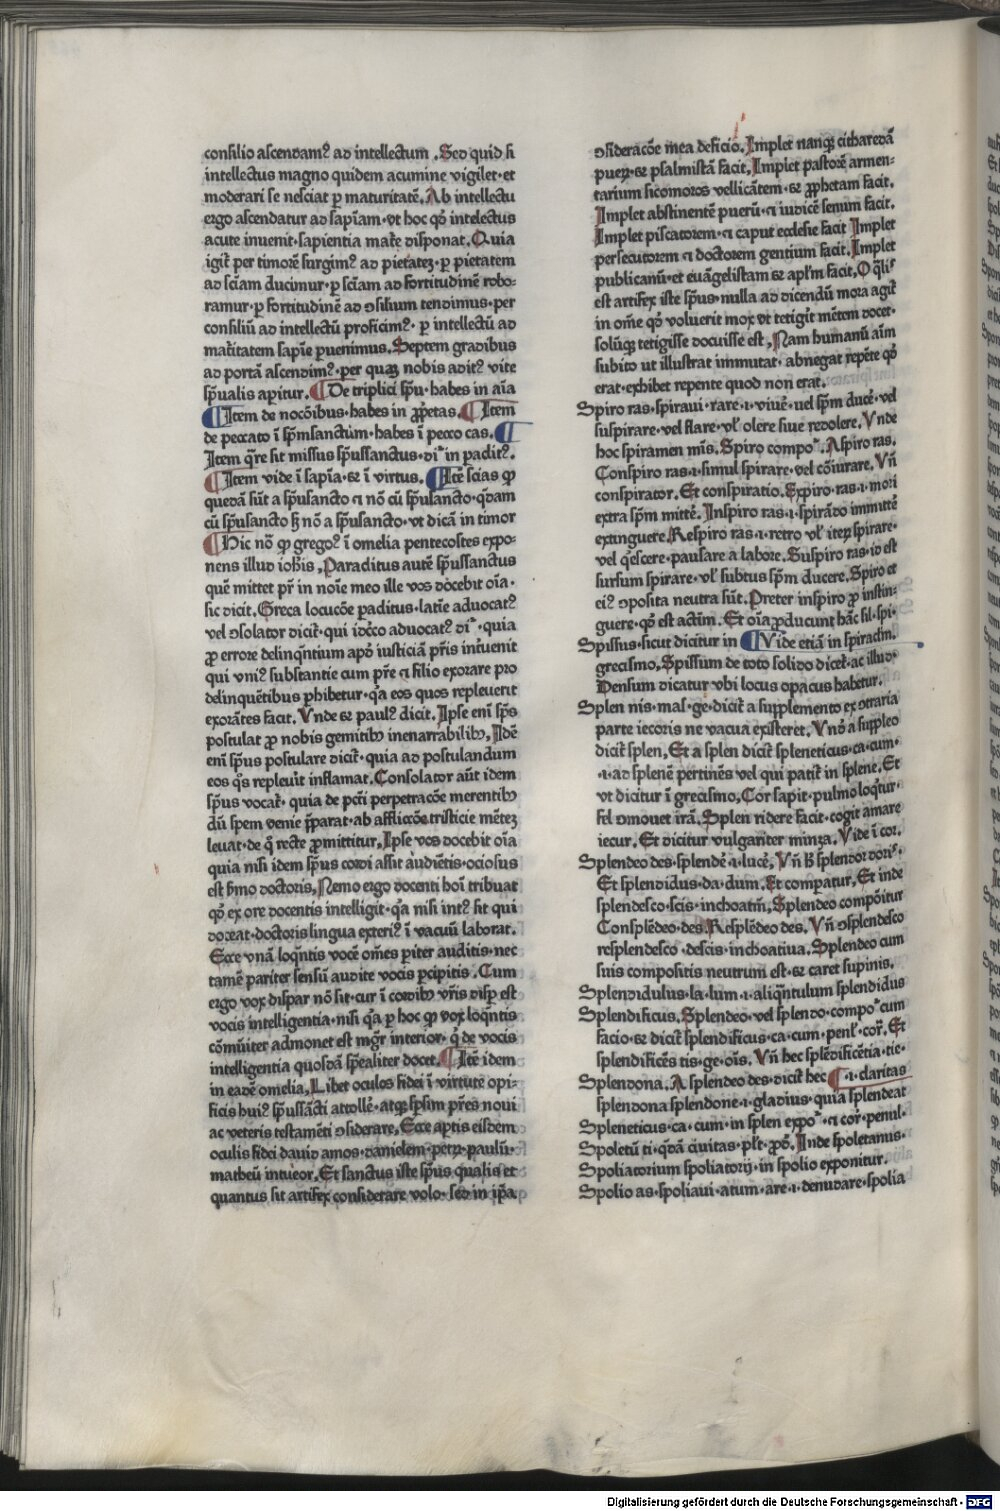 consilio ascendam⁹ ad intellectum. Sed quid si
intellectus magno quidem acumine vigilet·et
moderari se nesciat ꝑ maturitatē. Ab intellectu
ergo ascendatur ad sapīam·vt hoc qd̛ intelectus
acute inuenit·sapientia mat᷑e disponat. Quia
igit᷑ per timorē surgim⁹ ad pietateꝫ·ꝑ pietatem
ad sciam ducimur·ꝑ sciam ad fortitudinē robo-
ramur·ꝑ fortitudinē ad ꝯsilium tendimus·per
consiliū ad intellectū proficim⁹·ꝑ intellectū ad
mat᷑itatem sapīe ꝑuenimus. Septem gradibus
ad portā ascendim⁹·per quaꝫ nobis adit⁹ vite
sp̄ualis aperitur. ¶ De triplici sp̄u·habes in aīa
¶ Item de nocōibus·habes in ꝓphetas. ¶ Item
de peccato ī sp̄msanctum·habes ī pecco cas. ¶
Item q̄re sit missus sp̄ussanctus·di᷑ in padit⁹.
¶ Item vide ī sapīa·⁊ ī virtus. ¶ Itē scias ꝙ
quedā sūt a sp̄usancto ⁊ nō cū sp̄usancto·q̄dam
cū sp̄usancto sꝫ nō a sp̄usancto·vt dicā in timor
¶ Hic nō ꝙ grego⁹ ī omelia pentecostes expo-
nens illud ioh̄is, Paraclitus autē sp̄ussanctus
quē mittet pr̄ in noīe meo ille vos docebit oīa·
sic dicit. Greca locucōe paclitus·latīe aduocat⁹
vel ꝯsolator dicit᷑·qui idcco aduocat⁹ di᷑·quia
ꝓ errore delinq̄ntium apd̛ iusticiā pr̄is int᷑uenit
qui vni⁹ substantie cum pr̄e ⁊ filio exorare pro
delinquētibus ꝑhibetur·q̄a eos quos repleuerit
exorātes facit. Vnde ⁊ paul⁹ dicit. Ipse eni sp̄s
postulat ꝓ nobis gemitibꝫ inenarrabilibꝫ, Idē
eni sp̄us postulare dicit᷑·quia ad postulandum
eos q̄s repleuit inflamat. Consolator aūt idem
sp̄us vocat᷑·quia de pcc̄ti perpetracōe merentibꝫ
dū spem venie p̄parat·ab afflicciōe tristicie mēteꝫ
leuat·de q̄ recte ꝓmittitur. Ipse vos docebit oīa
quia nisi idem sp̄us cordi assit audiētis·ociosus
est smo doctoris, Nemo ergo docenti hoī tribuat
qd̛ ex ore docentis intelligit·q̄a nisi int⁹ sit qui
doceat·doctoris lingua exteri⁹ ī vacuū laborat.
Ecce vnā loq̄ntis vocē om̄es ꝑiter auditis·nec
tamē pariter sensū audite vocis ꝑcipitis. Cum
ergo vox dispar nō sit·cur ī cordibꝫ vr̄is disꝑ est
vocis intelligentia·nisi q̄a ꝑ hoc ꝙ vox loq̄ntis
cōmūiter admonet est mg̅r interior·q̄ de vocis
intelligentia quosdā sp̄ealiter docet. ¶ Itē idem
in eadē omelia, Libet oculos fidei ī virtute opi-
ficis hui⁹ sp̄ussācti attollē·atqꝫ sꝑsim pr̄es noui
ac veteris testamēti ꝯsiderare, Ecce aꝑtis eisdem
oculis fidei dauid amos·danielem·petꝝ·paulū·
matheū intueor. Et sanctus iste sp̄us qualis et
quantus sit artifex considerare volo·sed in ip̄a
ꝯsideracōe mea deficio. Implet nanqꝫ citharedā
pueꝝ·⁊ psalmistā facit. Implet pastorē armen-
tarium sicomoros vellicātem·⁊ ꝓphetam facit.
Implet abstinentē puerū·⁊ iudicē senum facit.
Implet piscatorem·⁊ caput ecclesie facit Implet
persecutorem ⁊ doctorem gentium facit. Implet
publicanū·et euāgelistam ⁊ apl̄m facit, O q̄lis
est artifex iste sp̄us·nulla ad dicendū mora agit᷑
in om̄e qd̛ voluerit mox vt tetigit mētem docet·
solūqꝫ tetigisse docuisse est, Nam humanū aīm
subito ut illustrat immutat·abnegat repēte qd̛
erat·exhibet repente quod non erat.
Spiro ras·spiraui·rare·i·viuē·uel sp̄m ducē·vel
suspirare·vel flare·vl̛ olere siue redolere. Vnde
hoc spiramen mīs. Spiro compoᵒ. Aspiro ras.
Conspiro ras·i·simul spirare·vel cōiurare. Vn̄
conspirator. Et conspiratio. Expiro·ras·i·mori
extra sp̄m mittē. Inspiro ras·i·spirādo immittē
extinguere. Respiro ras·i·retro vl̛ iteꝝ spirare·
vel q̄escere·pausare a labore. Suspiro ras·id est
sursum spirare·vl̛ subtus sp̄m ducere. Spiro et
ei⁹ ꝯposita neutra sūt. Preter inspiro ꝓ instin-
guere·qd̛ est actiuū. Et oīa ꝓducunt hāc sil·spi·
Spissus·sicut dicitur in ¶ Vide etiā in spiraclm.
grecismo, Spissum de toto solido dicet·ac illud·
Densum dicatur vbi locus opacus habetur.
Splen nis·mas·ge·dicit᷑ a supplemento ex ꝯtraria
parte iecoris ne vacua existeret. Vnd̛ a suppleo
dicit᷑ splen, Et a splen dicit᷑ spleneticus·ca·cum·
·i·ad splenē pertinēs vel qui patit᷑ in splene. Et
vt dicitur ī grecismo, Cor sapit·pulmo loqt᷑ur·
fel ꝯmouet irā. Splen ridere facit·cogit amare
iecur. Et dicitur vulgariter minza. Vide ī cor.
Splendeo des·splendē·i·lucē, Vn̄ h̄ splendor doris·
Et splendidus·da·dum. Et comparatur, Et inde
splendesco·scis·inchoatīū, Splendeo compōitur
Consplēdeo·des. Resplēdeo des. Vn̄ ꝯsplendesco
resplendesco·descis·inchoatiua. Splendeo cum
suis compositis neutrum est·⁊ caret supinis.
Splendidulus·la·lum·i·aliq̄ntulum splendidus
Splendificus. Splendeo·vel splendo·compoᵒ cum
facio·⁊ dicit᷑ splendificus·ca·cum·penl̛·cor᷑. Et
splendificēs tis·ge·oīs. Vn̄ hec splēdificētia·tie·
Splendona. A splendeo des·dicit᷑ hec ¶·i·claritas
splendona splendone·i·gladius·quia splendeat
Spleneticus·ca·cum·in splen expoᵒ·⁊ cor᷑·penul·
Spoletū ti·qdā ciuitas·pl̛t·ꝓd̛. Inde spoletanus·
Spoliatorium spoliatorij·in spolio exponitur.
Spolio as·spoliaui·atum·are·i·denudare·spolia
Digitalisierung gefördert durch die Deutsche Forschungsgemeinschaft - DFG